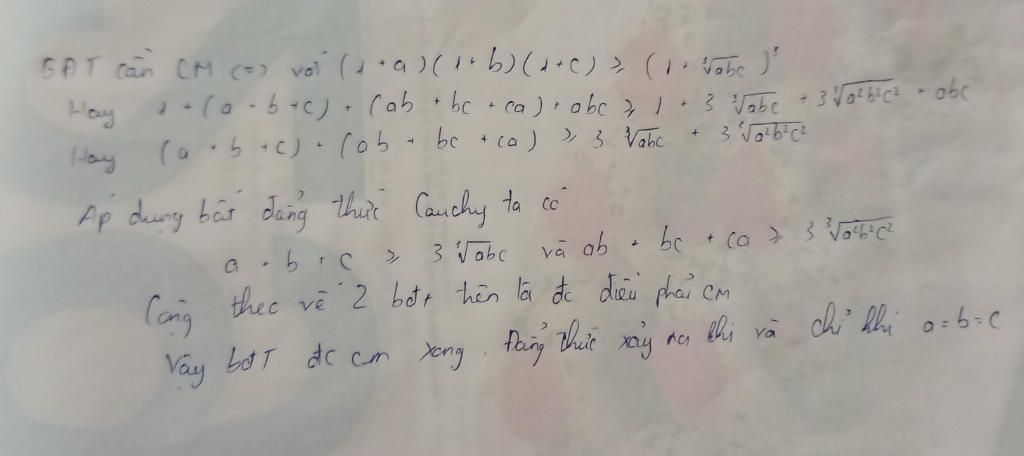 BĐT cần CM <=> với (1 + a)(1 + b)(1 + c) ≥ (1 + ∛abc)³
Hay 1 + (a + b + c) + (ab + bc + ca) + abc ≥ 1 + 3 ∛abc + 3∛a²b²c² + abc
Hay (a + b + c) + (ab + bc + ca) ≥ 3 ∛abc + 3∛a²b²c²
Áp dụng bất đẳng thức Cauchy ta có
a + b + c ≥ 3 ∛abc và ab + bc + ca ≥ 3 ∛a²b²c²
Cộng theo vế 2 bđt trên ta đc điều phải CM
Vậy bđT đc cm xong. Đẳng thức xảy ra khi và chỉ khi a = b = c